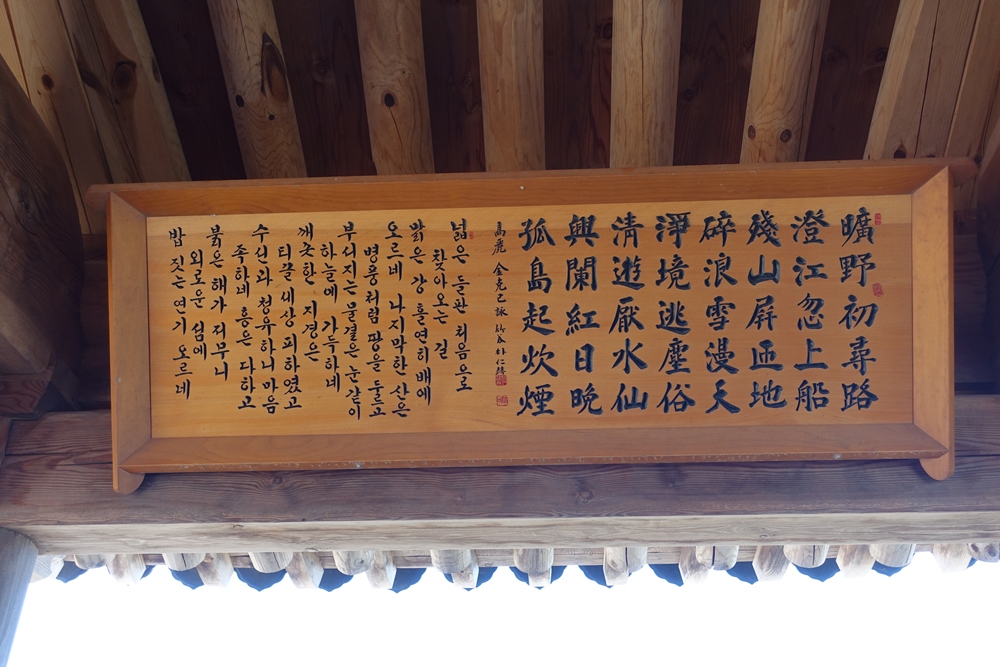 曠野初尋路
澄江忽上船
殘山屛匝地
碎浪雪漫天
淨境逃塵俗
清遊厭水仙
興闌紅日晩
孤島起炊煙
高麗 金克己 詠
넓은 들판 처음으로
찾아오는 길
맑은 강 홀연히 배에
오르네 나지막한 산은
병풍처럼 땅을 두르고
부서지는 물결은 눈같이
하늘에 가득하네
깨끗한 지경은
티끌 세상 피하였고
수신과 청유하니 마음
족하네 흥은 다하고
붉은 해가 저무니
외로운 섬에
밥 짓는 연기 오르네